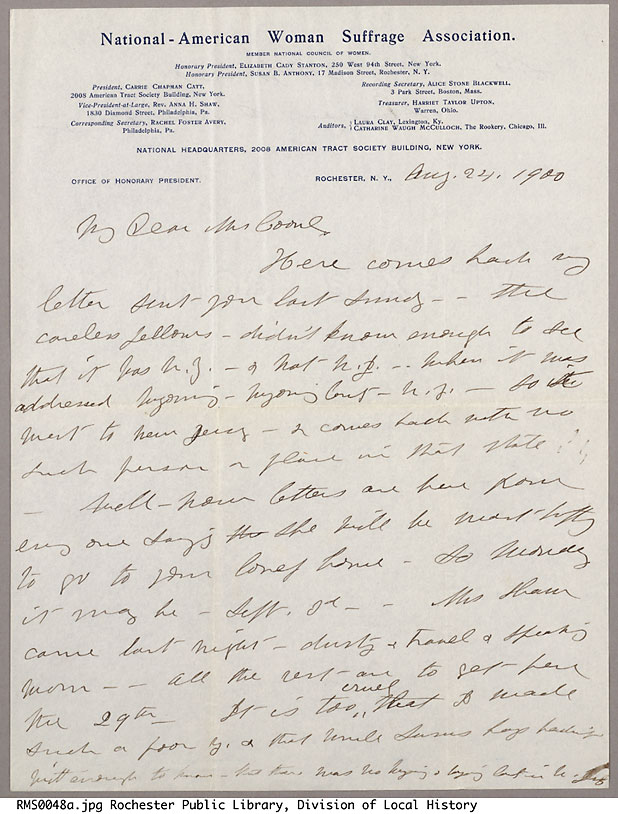 National-American Woman Suffrage Association.
MEMBER NATIONAL COUNCIL OF WOMEN.
Honorary President, ELIZABETH CADY STANTON, 250 West 94th Street, New York.
Honorary President, SUSAN B. ANTHONY, 17 Madison Street, Rochester, N. Y.
President, CARRIE CHAPMAN CATT,
2008 American Tract Society Building, New York.
Vice-President-at-Large, REV. ANNA H. SHAW,
1830 Diamond Street, Philadelphia, Pa.
Corresponding Secretary, RACHEL FOSTER AVERY,
Philadelphia, Pa.
Recording Secretary, ALICE STONE BLACKWELL,
3 Park Street, Boston, Mass.
Treasurer, HARRIET TAYLOR UPTON,
Warren, Ohio.
Auditors, LAURA CLAY, Lexington, Ky.
CATHARINE WAUGH MCCULLOCH, The Rookery, Chicago, Ill.
NATIONAL HEADQUARTERS, 2008 AMERICAN TRACT SOCIETY BUILDING, NEW YORK.
OFFICE OF HONORARY PRESIDENT.
ROCHESTER, N. Y., Aug. 24, 1900
My Dear Mrs
Here comes back my
letter sent you last Sunday - - The
careless fellows - didn't know enough to see
that it was N.Y. - & not N.J. - - when it was
addressed Wyoming - Wyoming Cout - N.Y. - So it
went to New Jersey - & comes back with no
such person or place in that state!!
- Well - now letters are here from
every one says she will be most happy
to go to your lovely home - So Monday
it may be - Sept. 3d - - Miss Shaw
came last night - dusty & travel & speaking
worn - - all the rest are to get here
the 29th - It is too cruel, that I made
such a poor Y. & that Uncle Sam's boys hadn't
wit enough to know - that there was no Wyoming
RMS0048a.jpg Rochester Public Library, Division of Local History